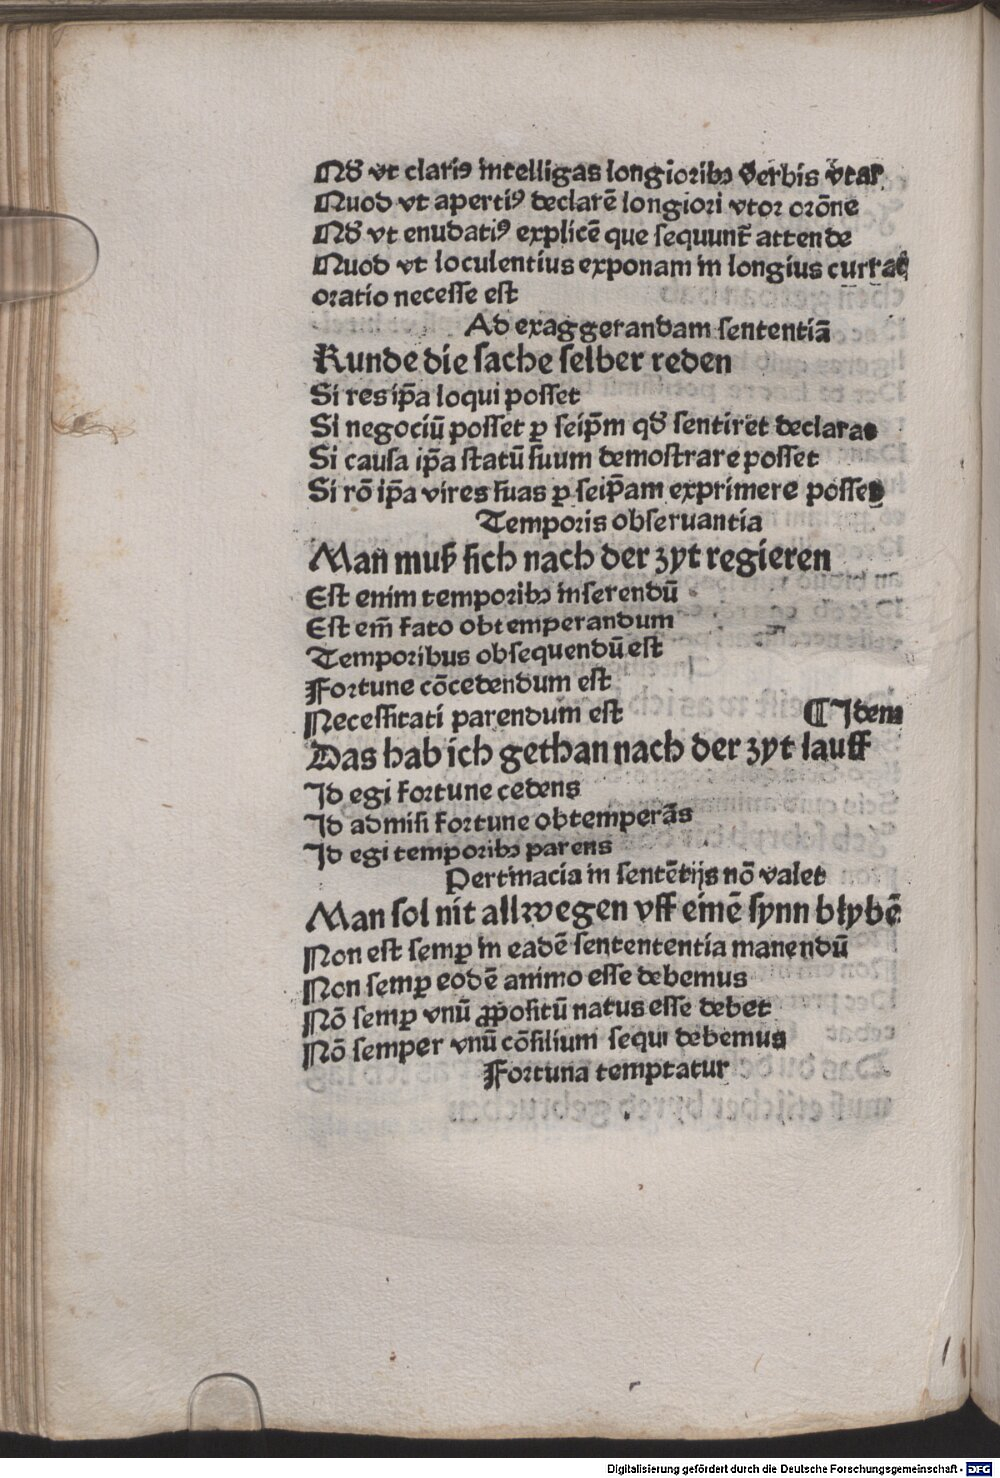 Qđ vt clariꝰ intelligas longioribꝫ verbis vtar
Quod vt apertiꝰ declarē longiori vtor orōne
Qđ vt enudatiꝰ explicē que sequunt̃ attende
Quod vt loculentius exponam in longius currat
oratio necesse est
Ad exaggerandam sententiā
Kunde die sache selber reden
Si res ip̄a loqui posset
Si negociū posset ꝑ seip̄m qđ sentiret declarat
Si causa ip̄a statū suum demostrare posset
Si rō ip̄a vires suas ꝑ seip̄am exprimere posset
Temporis obseruantia
Man muß sich nach der zyt regieren
Est enim temporibꝫ inserendū
Est em̄ fato obtemperandum
Temporibus obsequendū est
Fortune cōcedendum est
Necessitati parendum est ¶ Idem
Das hab ich gethan nach der zyt lauff
Id egi fortune cedens
Id admisi fortune obtemperās
Id egi temporibꝫ parens
Pertinacia in sentētijs nō valet
Man sol nit allwegen vff einē synn blybē
Non est semꝑ in eadē sentententia manendū
Non semꝑ eodē animo esse debemus
Nō semꝑ vnū ꝓpositū natus esse debet
Nō semper vnū cōsilium sequi debemus
Fortuna temptatur
Digitalisierung gefördert durch die Deutsche Forschungsgemeinschaft - DFG